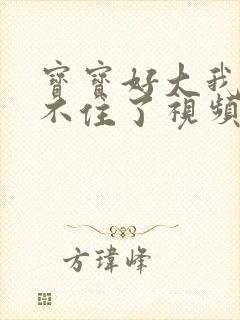 寶寶好大我
不住了視頻
方瑋峰